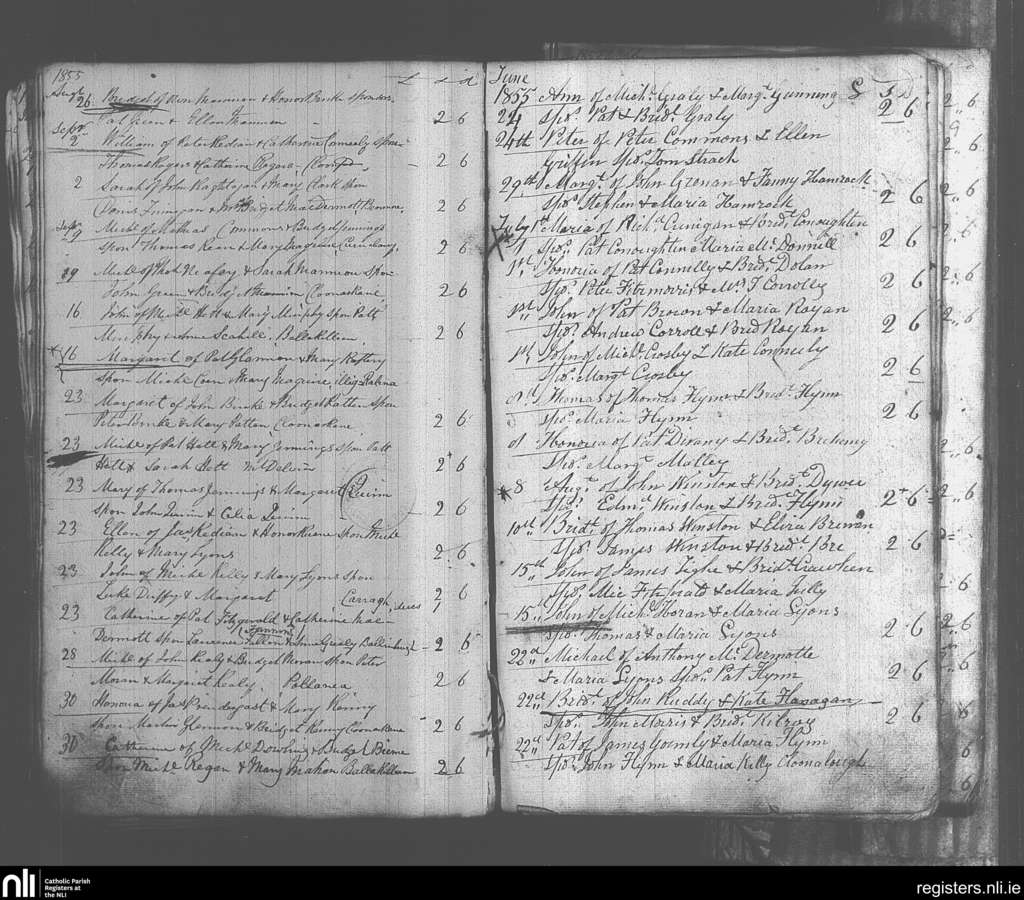 1855
Augt 26 Bridget of Mannion & Honor Burke sponsors
Pat Kean & Ellen Mannion 2 6
Sepr 2 William of Peter Redian & Catharine Connealy Spon
Thomas Rogers & Catherine Rogers 2 6
2 Sarah of John & Mary Clark spon
Finnegan & Bridget MacDermott 2 6
Sepr 9 Michl of Commons & Bridget Jennings
Spon Thomas Kean & Mary Maguire 2 6
19 Michl of & Sarah Mannion Spon
John Green & Bridget Mannion Cloonaskane 2 6
16 John of Michl Hett & Mary Murphy spon Patt
Murphy & Anne Scahill, Ballakillian 2 6
16 Margaret of Pat Glannon & Mary Raftery
spon Michl Coen & Mary Maguire, illig
23 Margaret of John Burke & Bridget Patten spon
Peter Burke & Mary Patten Cloonakane 2 6
23 Michl of Pat Hett & Mary Jennings spon Patt
Hett & Sarah Hett 2 6
23 Mary of Thomas Jennings & Margaret Quinn
spon John Quinn & Celia Quinn 2 6
23 Ellen of Jas Redian & Honor Keane spon Michl
Kelly & Mary Lyons 2 6
23 John of Michl Kelly & Mary Lyons Spon
Luke Duffy & Margaret Carragh 2 6
23 Catherine of Pat Fitzgerald & Catherine Mac
Dermott spon Laurence Fallon & Anne Grealy 2 6
28 Michl of John Healy & Bridget Moran spon Peter
Moran & Margaret Healy. 2 6
30 Honora of Jas Prendergast & Mary Kenny
spon Martin Glennon & Bridget Kenny Cloonakane 2 6
30 Catherine of Michl Dowling & Bridget Beirne
Spon Michl Regan & Mary Mahon Ballakillian 2 6
June £ S D
1855 Ann of Michl. Graly & Margt. Gunning
24 Spo. Pat & Bridt. Graly 2 6
24th Peter of Peter Commons & Ellen
Griffin Spo. Tom Strach
29th Margt. of John Grenan & Fanny Hamrock
Spo. Stephen & Maria Hamrock 2 6
July 1st Maria of Richd. Cunigan & Bridt. Conoughten
Spo. Pat Conoughten Maria Mc.Donnill 2 6
1st Honoria of Pat Connilly & Brid. Dolan
Spo. Peter Fitzmorris & Mrs T Corrolly 2 6
1st John of Pat Brown & Maria Royan
Spo. Andrew Corroll & Brid Royan 2 6
1st John of Michl. Crosby & Kate Conneely
Spo. Margt. Crosby 2 6
8th Thomas of Thomas Flynn & Bridt. Flynn
Spo. Maria Flynn 2 6
d Honoria of Pat. Divany & Bridt. Breheny
Spo. Margt. Malley
8 Augt. of John Winston & Bridt. Dywer
Spo. Edmd. Winston & Brid. Flynn 2 6
10th Bridt. of Thomas Winston & Eliza Brenan
Spo. James Winston & Bridt. Bre 2 6
15th John of James Tighe & Bridt. Crawhen
Spo. Mic Fitznald & Maria Jully 2 6
15th John of Michl Horan & Maria Lyons
Spo. Thomas & Maria Lyons 2 6
22nd Michael of Anthony Mc.Dermotte
& Maria Lyons Spo. Pat Flynn 2 6
22nd Bridt. of John Ruddy & Kate Flanagan
Spo. John Morris & Brid. Kilroy 2 6
22nd Pat of James Gormly & Maria Flynn
Spo. John Flynn & Maria Kelly Cloonalough
nli Catholic Parish
Registers at
the NLI
registers.nli.ie